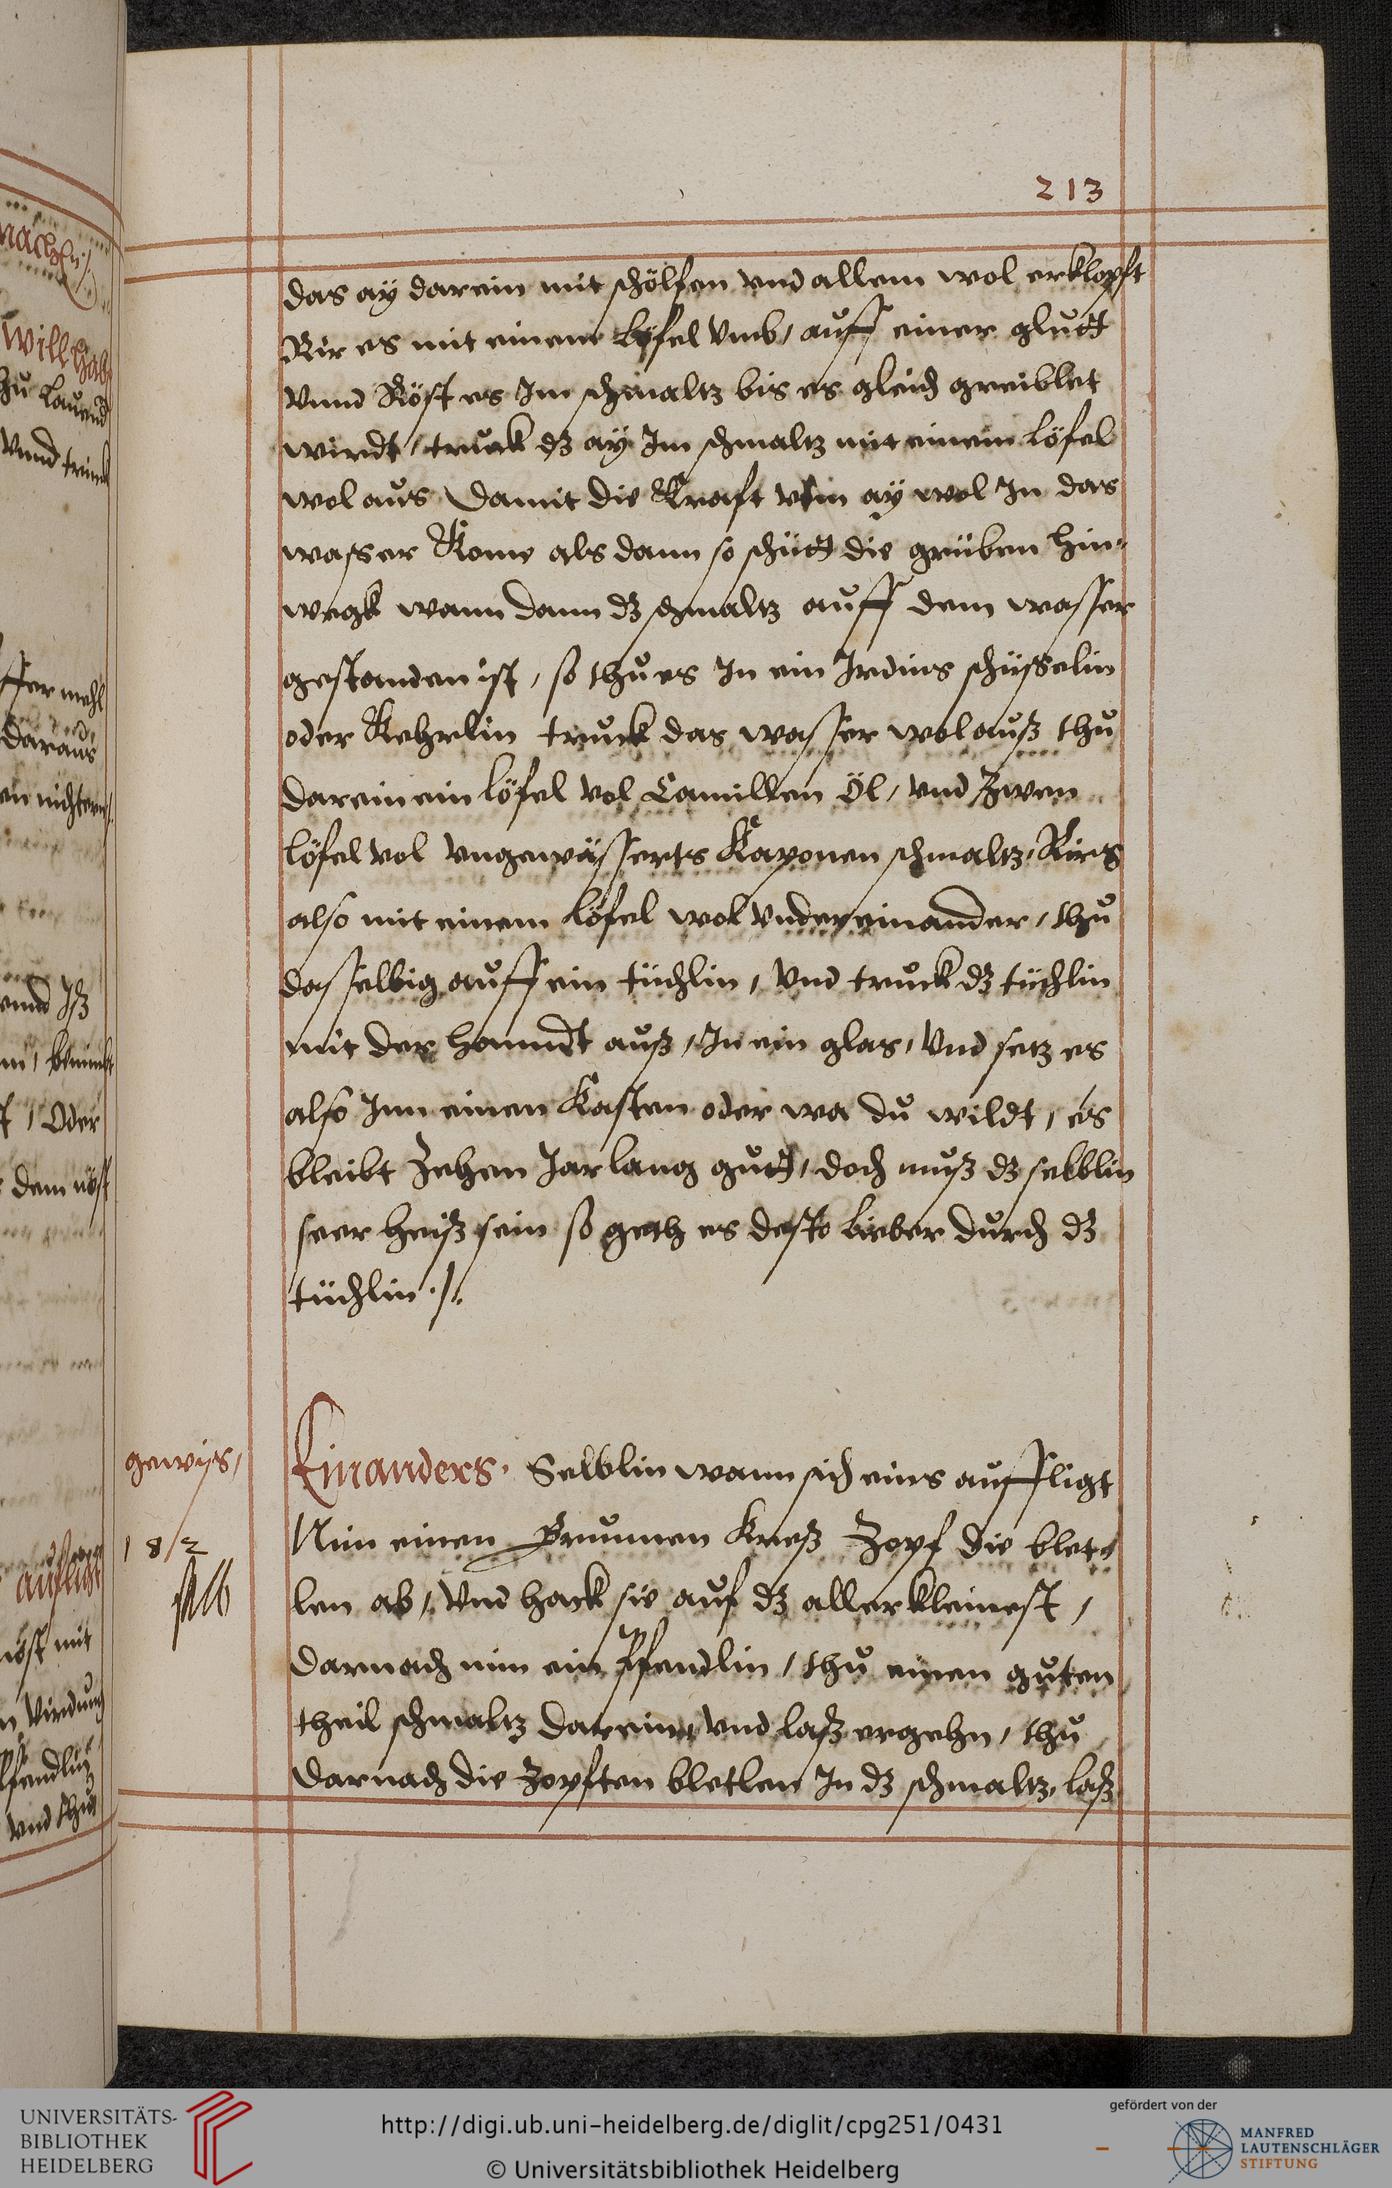 213
das aÿ darein mit schölfen vnd allem wol erklopft
Rir es mit einem Löfel vmb, auff einer glutt
Vnnd Röst es Im schmaltz bis es gleich greiblet
wirdt, truck dz aÿ Im schmaltz mit einem Löfel
wol aus Damit die Krafft vom aÿ wol In das
wasser Kome als dann so schütt die grüben hin-
wegk wann dann dz schmaltz auff dem wasser
gestanden ist, so thu es In ein Irdins schüsselin
oder Kehrlin truck das wasser wol auß thu
darein ein löfel vol Camillen Öl, vnd Zwen
löfel vol vngewässerts Kaponen schmaltz, Rirs
also mit einem löfel wol vndereinander, thu
dasselbig auff ein tüchlin, vnd truck dz tüchlin
mit der hanndt auß, In ein glas, vnd setz es
also Inn einen Kasten oder wa du wildt, es
bleibt Zehen Jar lang gutt, doch muß dz selblin
seer heiß sein so geth es desto lieber durch dz
tüchlin ./.
gewÿs,
Ein anders. Selblin wann sich eins auffligt
Nim einen Brunnen Kreß Zopf die blet-
1 8/2
len ab, vnd hack sie auf dz aller kleinest,
darnach nim ein Pfendlin, thu einen guten
theil schmaltz darein, vnd laß ergehn, thu
darnach die Zopften bletlen In dz schmaltz, laß
UNIVERSITÄTS-
BIBLIOTHEK
HEIDELBERG
http://digi.ub.uni-heidelberg.de/diglit/cpg251/0431
© Universitätsbibliothek Heidelberg
gefördert von der
MANFRED
LAUTENSCHLÄGER
STIFTUNG